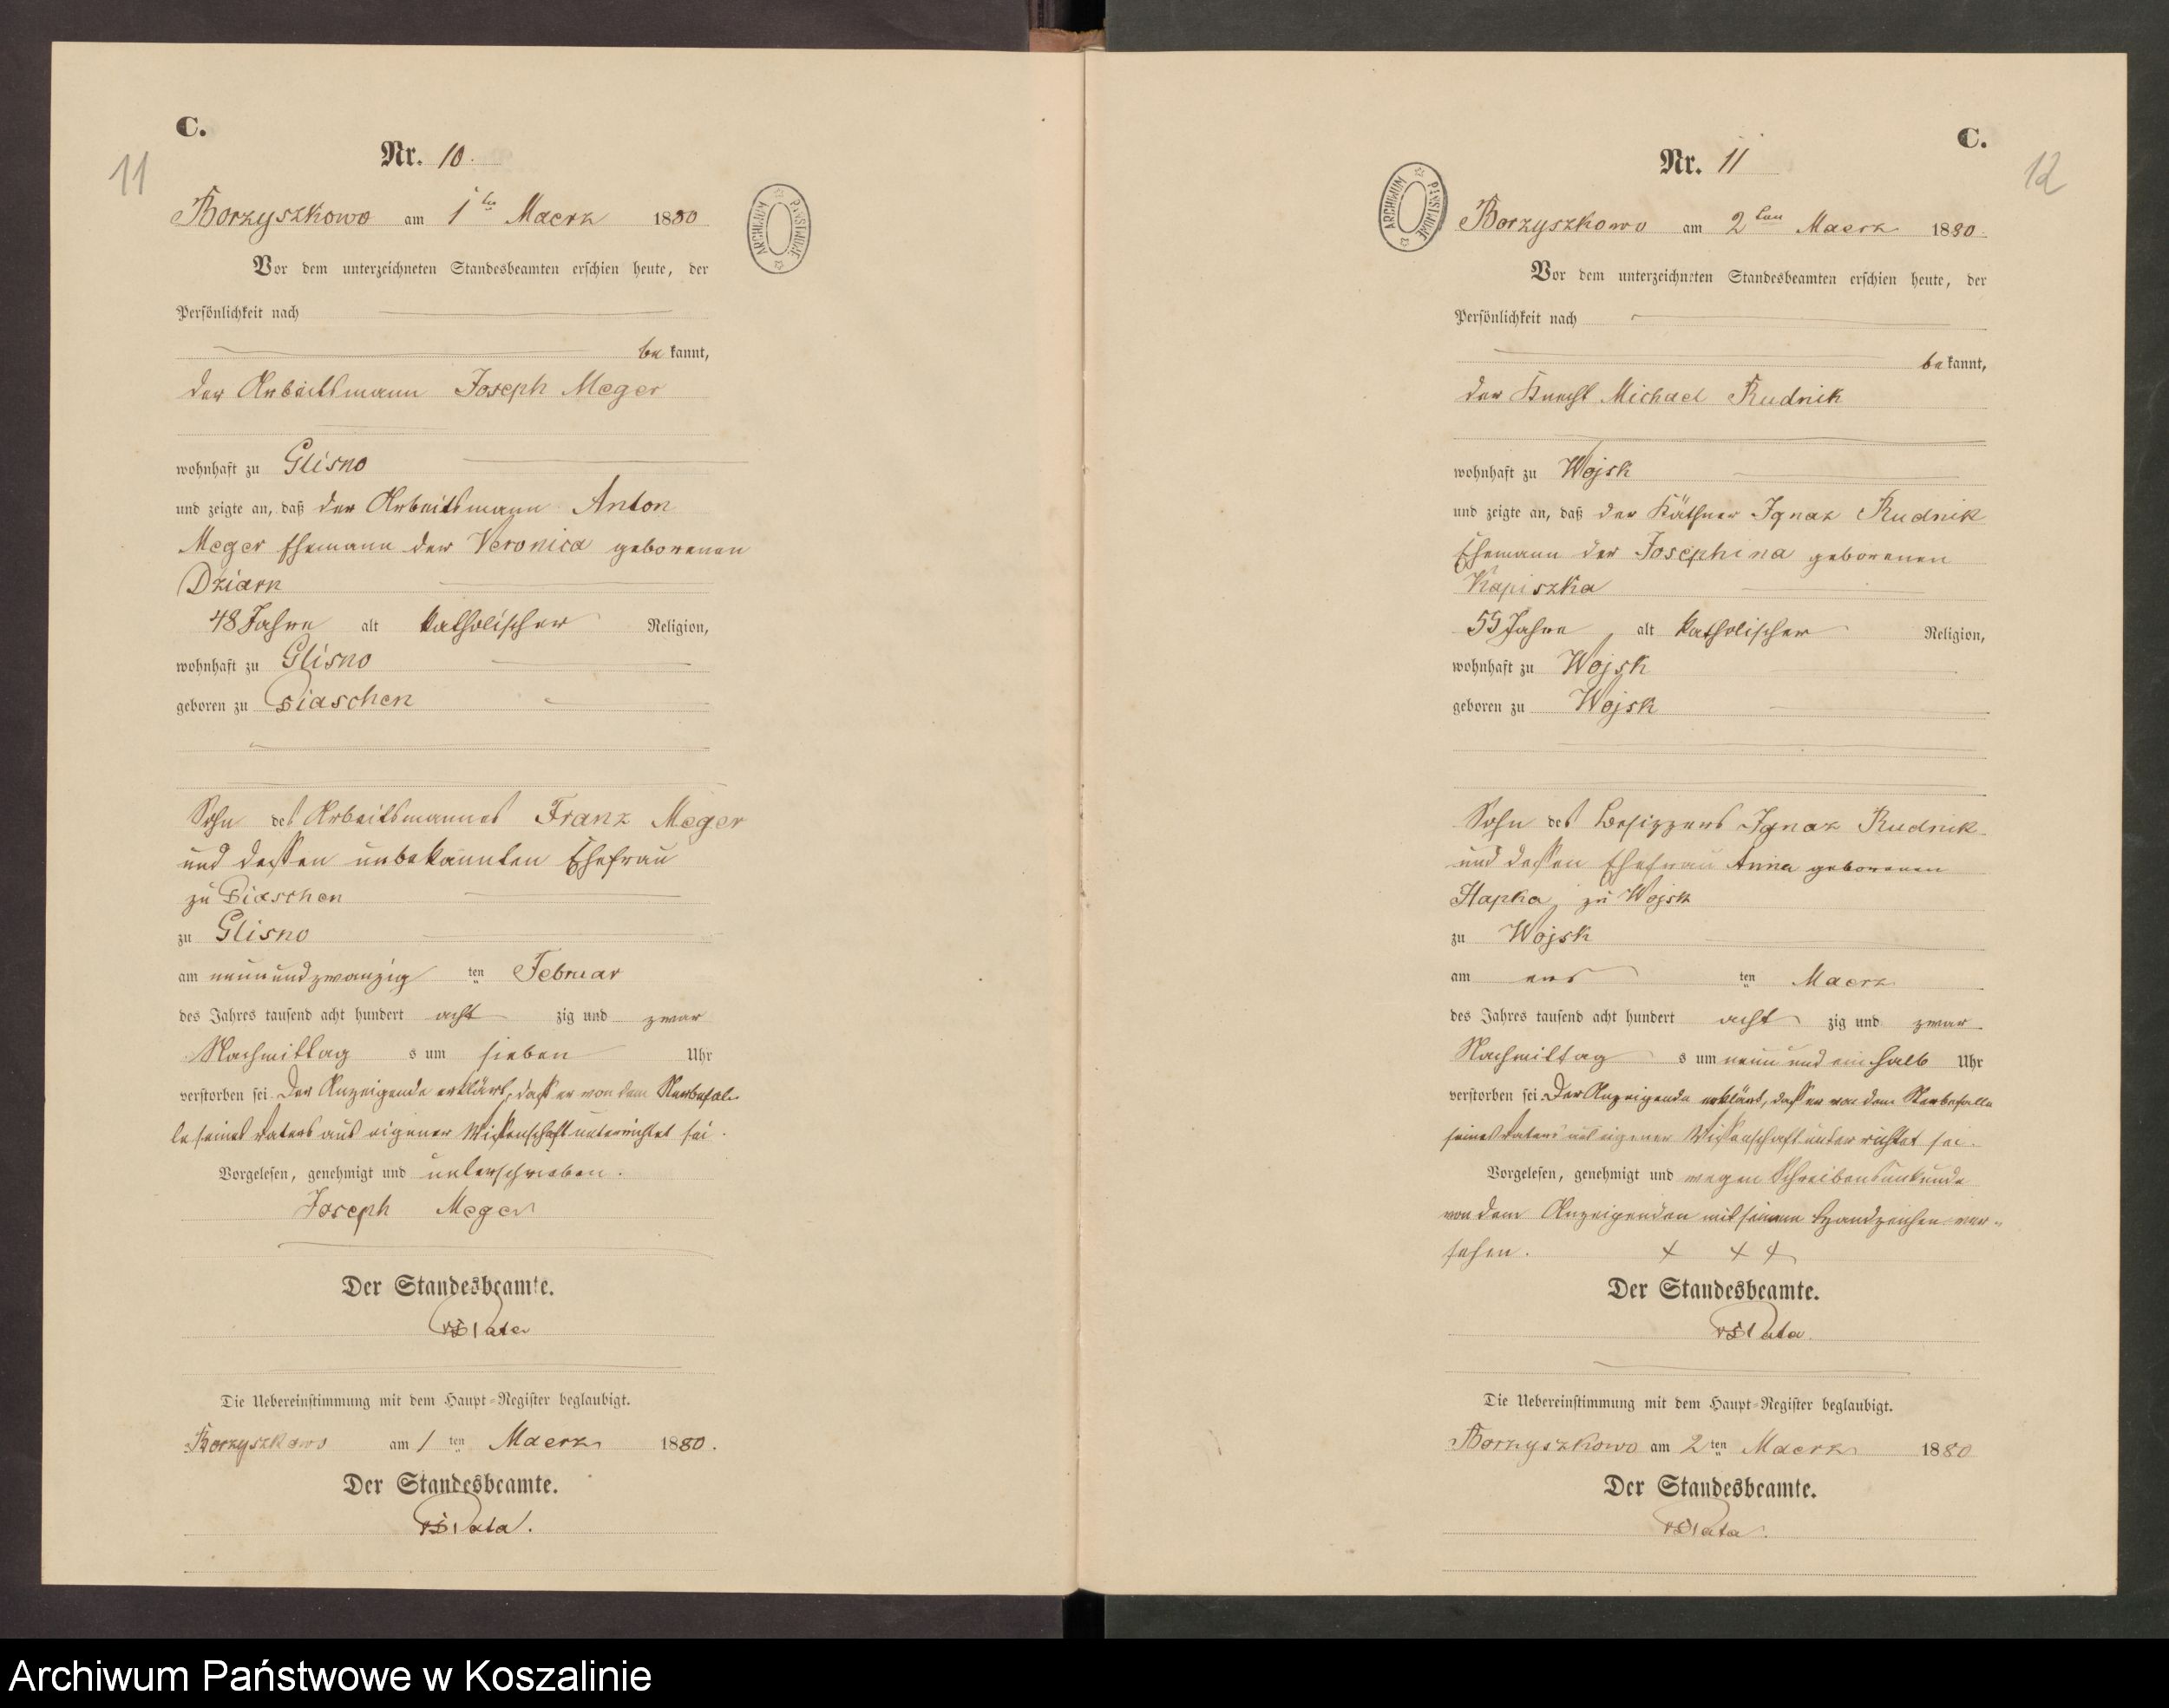 C.
11
Nr. 10.
Borzyszkowo am 1ten Maerz 1880
ARCHIWUM PAŃSTWOWE
Vor dem unterzeichneten Standesbeamten erschien heute, der
Persönlichkeit nach
bekannt,
der Arbeitsmann Joseph Meger
wohnhaft zu Glisno
und zeigte an, daß der Arbeitsmann Anton
Meger Ehemann der Veronica geborenen
Dziarn
48 Jahre alt katholischer Religion,
wohnhaft zu Glisno
geboren zu Piaschen
Sohn des Arbeitsmannes Franz Meger
und dessen unbekannten Ehefrau
zu Piaschen
zu Glisno
am neunundzwanzig ten Februar
des Jahres tausend acht hundert acht zig und zwar
Nachmittag s um sieben Uhr
verstorben sei. Der Anzeigende erklärt, dass er von dem Sterbefal-
le seines Vaters aus eigener Wissenschaft unterrichtet sei.
Vorgelesen, genehmigt und unterschrieben.
Joseph Meger
Der Standesbeamte.
Die Uebereinstimmung mit dem Haupt-Register beglaubigt.
Borzyszkowo am 1 ten Maerz 1880.
Der Standesbeamte.
C.
12
Nr. 11
Borzyszkowo am 2ten Maerz 1880.
ARCHIWUM PAŃSTWOWE
Vor dem unterzeichneten Standesbeamten erschien heute, der
Persönlichkeit nach
bekannt,
der Knecht Michael Rudnik
wohnhaft zu Wojsk
und zeigte an, daß der Käthner Ignaz Rudnik
Ehemann der Josephina geborenen
Kapiszka
55 Jahre alt katholischer Religion,
wohnhaft zu Wojsk
geboren zu Wojsk
Sohn des Besizzers Ignaz Rudnik
und dessen Ehefrau Anna geborenen
Hapka zu Wojsk
zu Wojsk
am ers ten Maerz
des Jahres tausend acht hundert acht zig und zwar
Nachmittag s um neun und ein halb Uhr
verstorben sei. Der Anzeigende erklärt, dass er von dem Sterbefalle
seines Vaters aus eigener Wissenschaft unterrichtet sei.
Vorgelesen, genehmigt und wegen Schreibensunkunde
von dem Anzeigenden mit seinem Handzeichen ver-
sehen. + + +
Der Standesbeamte.
Die Uebereinstimmung mit dem Haupt-Register beglaubigt.
Borzyszkowo am 2 ten Maerz 1880
Der Standesbeamte.
Archiwum Państwowe w Koszalinie